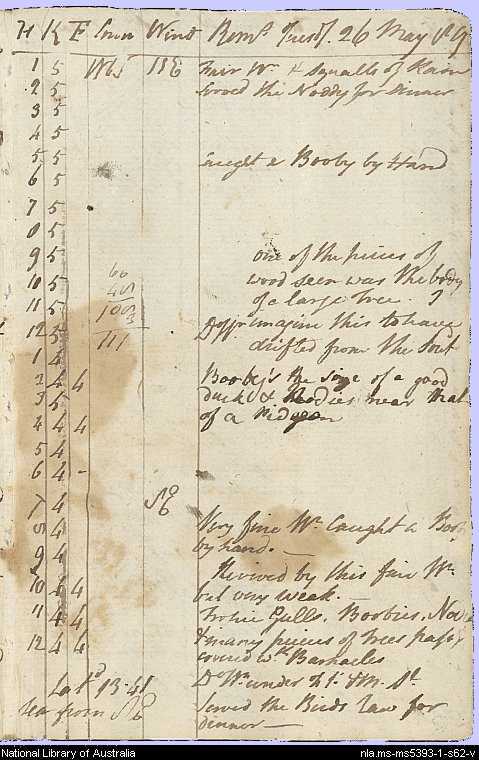 H K F Cours Wind Rems Tuesd. 26 May 89
1 5 WbS NE Fair Wr & Squalls of Rain
2 5 Served the Noddy for dinner
3 5
4 5
5 5 Caught a Booby by Hand
6 5
7 5
8 5
9 5 one of the pieces of
10 5 wood seen was the body
11 5 of a large tree.
12 5 Do I imagine this to have
drifted from the
1 4
2 4 4 Booby's the size of a good
3 5 duck & Nodies near that
4 4 4 of a Pidgeon
5 4
6 4 -
7 4 SE
8 4 Very fine Wr. Caught a Booby
9 4 by hand. —
Revived by this fair Wr.
10 4 4 but very weak. —
11 4 4 Gulls, Boobies, Nod
12 4 4 & many pieces of trees pass
covered wh. Barnacles
Latd. 13-41 Do Wr. under
Sea from SE Served the Birds raw for
dinner —
National Library of Australia
nla.ms-ms5393-1-s62-v